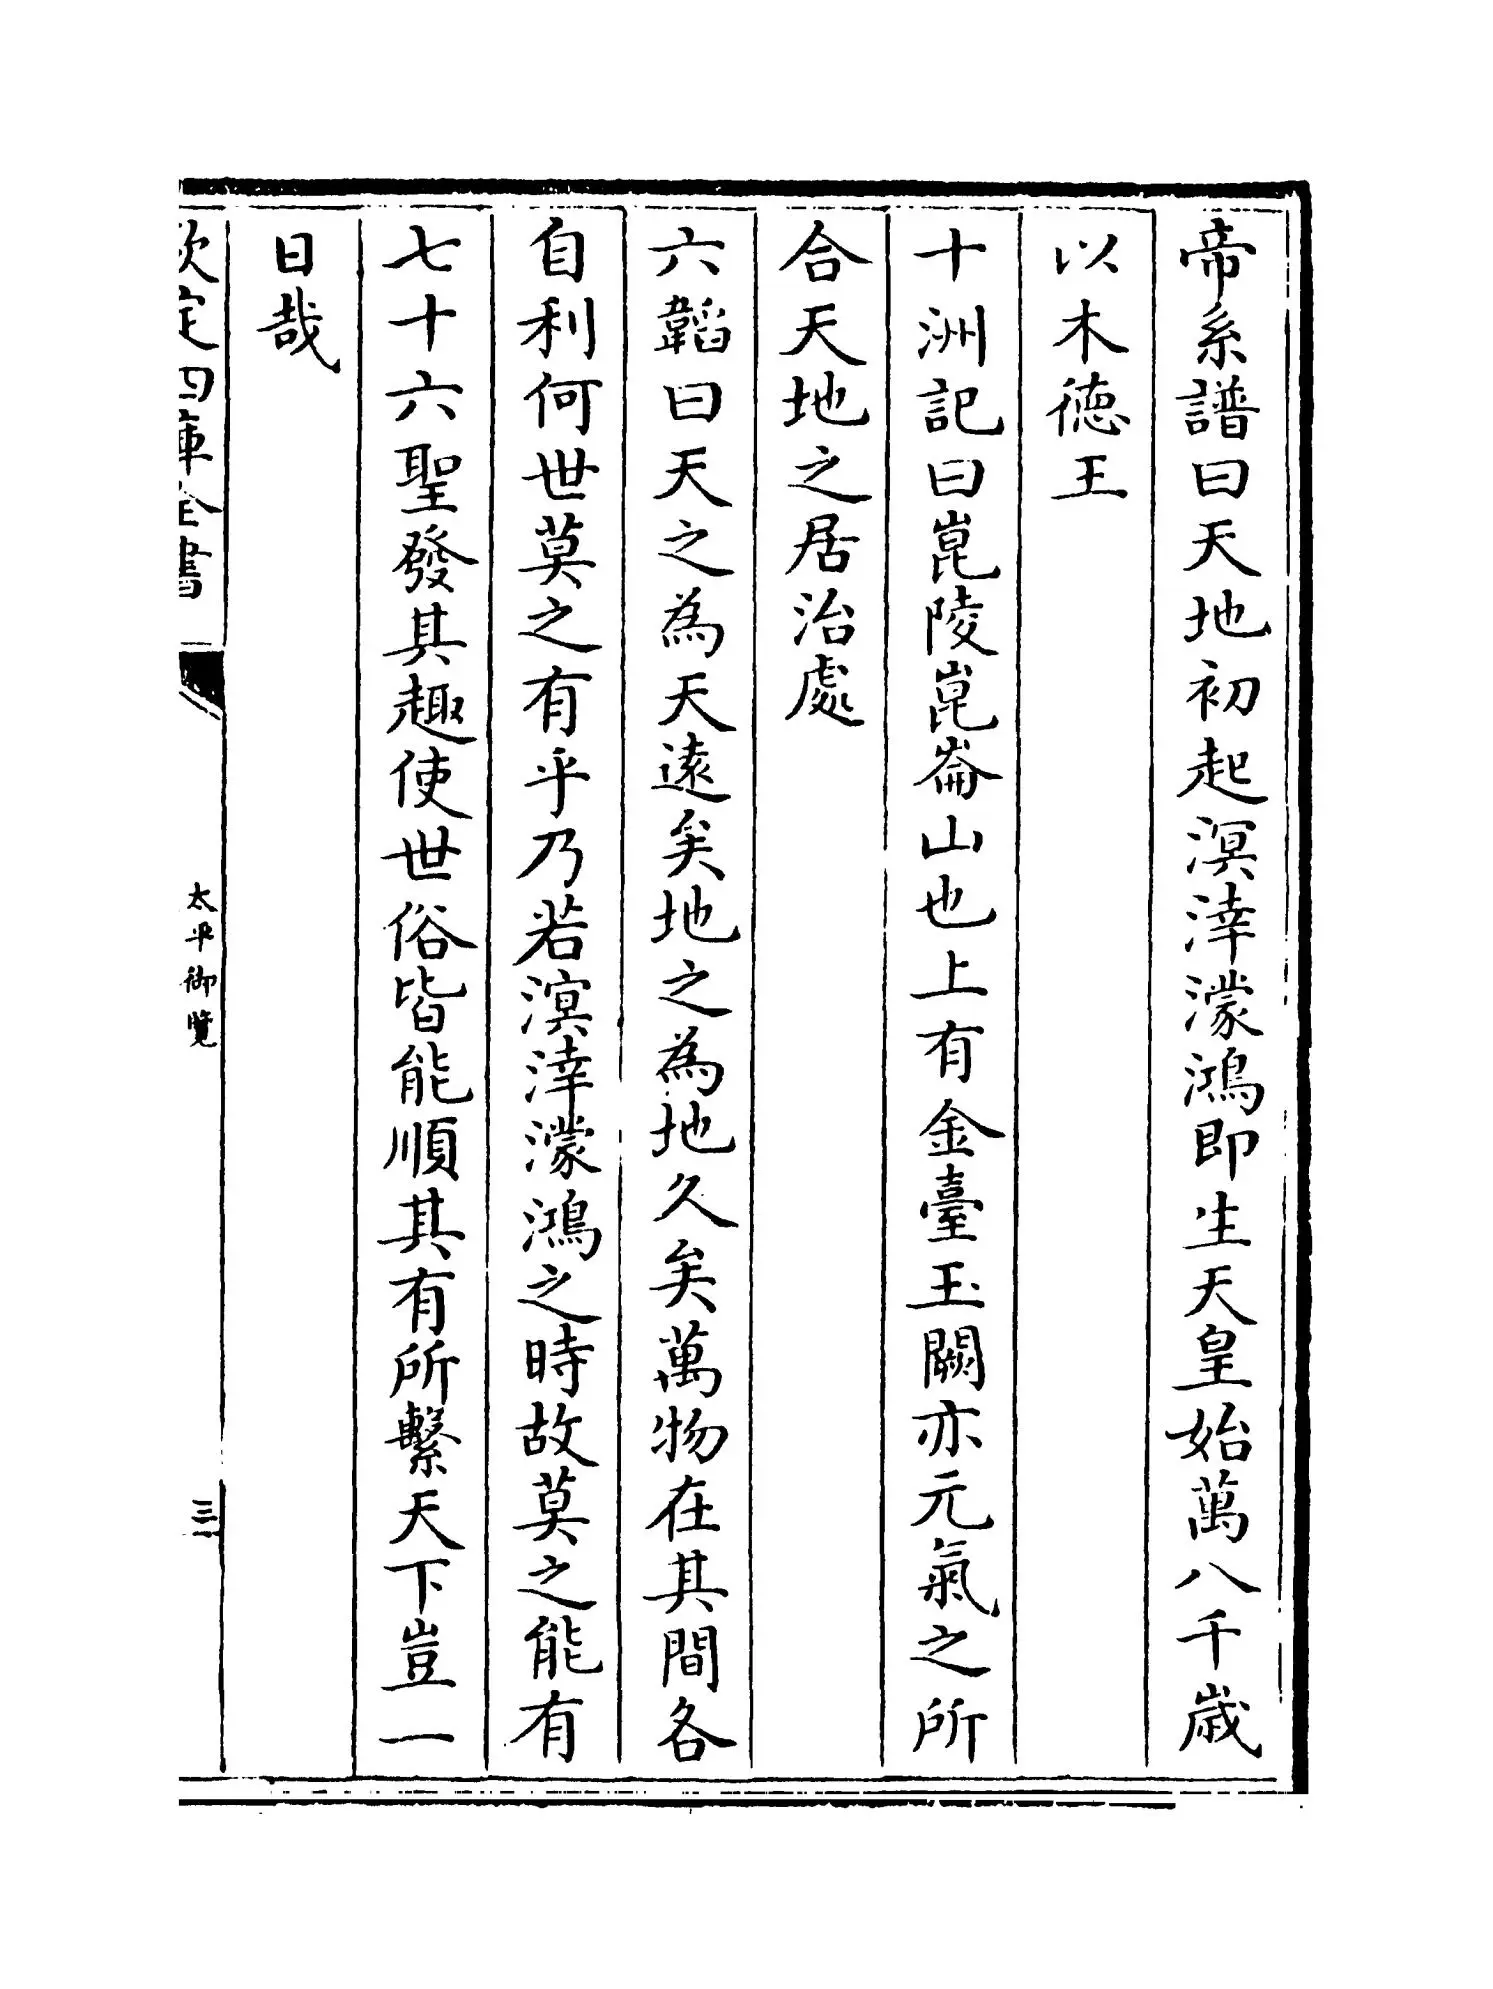 帝系譜曰天地初起溟涬濛鴻即生天皇始萬八千歲
以木德王
十洲記曰崑陵崑崙山也上有金臺玉闕亦元氣之所
合天地之居治處
六韜曰天之為天遠矣地之為地久矣萬物在其間各
自利何世莫之有乎乃若溟涬濛鴻之時故莫之能有
七十六聖發其趣使世俗皆能順其有所繫天下豈一
日哉
欽定四庫全書
太平御覽
三